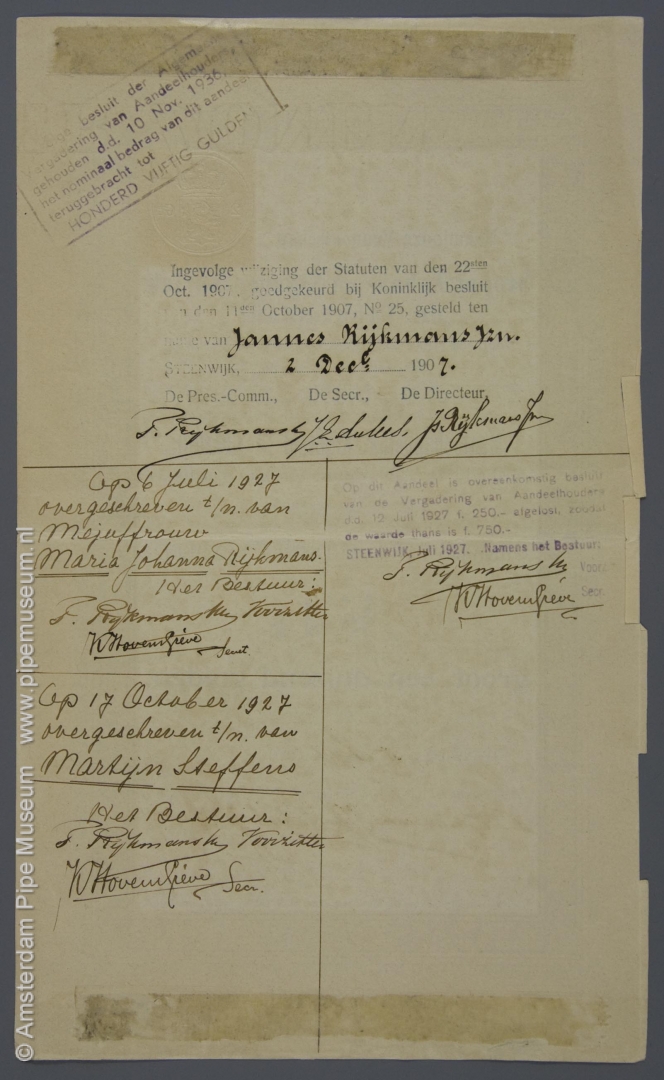 besluit der Algeme
vergadering van Aandeelhouders,
gehouden d.d. 10 Nov. 1936,
het nominaal bedrag van dit aandeel
teruggebracht tot
HONDERD VIJFTIG GULDEN
Ingevolge wijziging der Statuten van den 22sten
Oct. 1907, goedgekeurd bij Koninklijk besluit
van den 11den October 1907, No 25, gesteld ten
name van Jannes Rijkmans Jzn.
STEENWIJK, 2 Decr 1907.
De Pres.-Comm., De Secr., De Directeur,
F. Rijkmans Hz Js Rijkmans Jzn
Op 6 Juli 1927
overgeschreven t/n. van
Mejuffrouw
Maria Johanna Rijkmans.
Het Bestuur:
F. Rijkmans Hz Voorzitter
W Hovens Gréve Secret.
Op dit Aandeel is overeenkomstig besluit
van de Vergadering van Aandeelhouders
d.d. 12 Juli 1927 f. 250.- afgelost, zoodat
de waarde thans is f. 750.-
STEENWIJK, Juli 1927. Namens het Bestuur:
F. Rijkmans Hz Voorz.
W Hovens Gréve Secr.
Op 17 October 1927
overgeschreven t/n. van
Martijn Steffens
Het Bestuur:
F. Rijkmans Hz Voorzitter
W Hovens Gréve Secr.
© Amsterdam Pipe Museum www.pipemuseum.nl